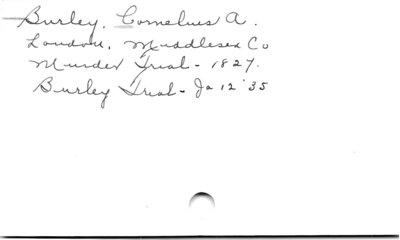 Burley, Cornelius A.
London, Middlesex Co
Murder Trial - 1827.
Burley Trial - Ja 12 '35